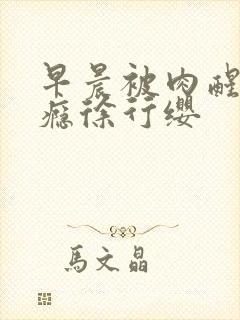 早晨被肉醒
瘾徐行缨
馬文晶